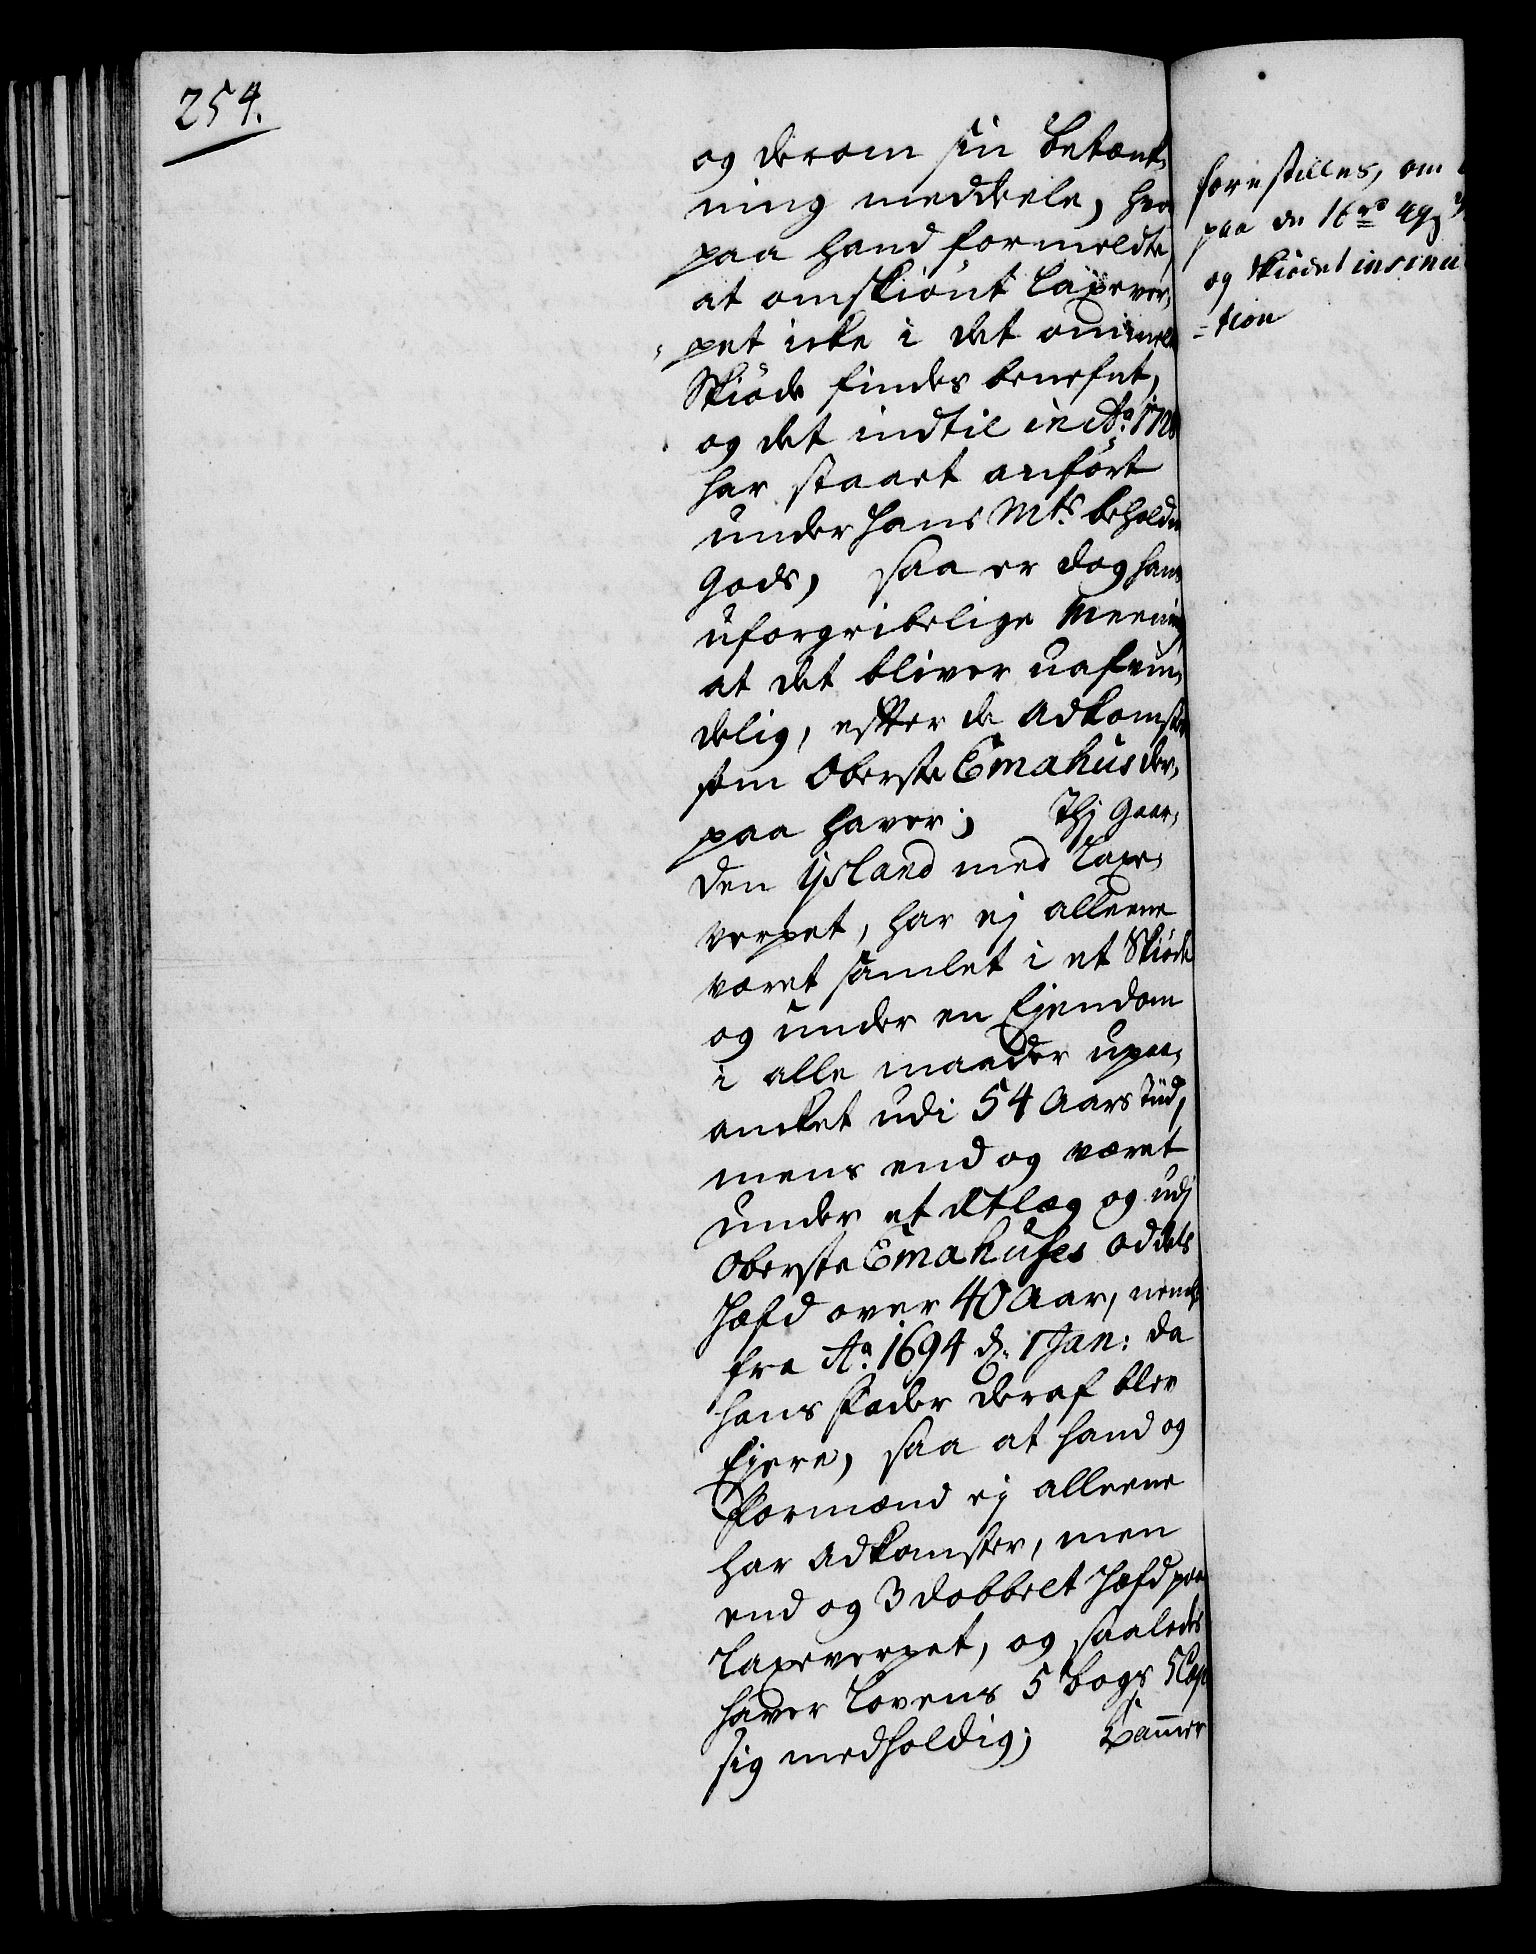 254.
og derom sin Betænk,
ning meddeele, hvor
paa hand formeldte,
at omskiønt Laxever,
pet icke i det ommelte
Skiøde findes benefnt,
og det indtil in Ao. 1728
har staaet anført
under Hans Mts. beholdne
Gods, saa er dog hans
uforgribelige Meening
at det bliver uafvin,
delig, efter de Adkomster
som Oberste Emahus der,
paa haver; Thj Gaar,
den Ysland med Laxe,
verpet, har ej alleene
været samlet i et Skiøde
og under en Ejendom
i alle maader upaa,
ancket udi 54 Aars Tiid,
mens end og været
under et Ætlæg og udj
Oberste Emahuses oddels
Hæfd over 40 Aar, nemlig
fra Ao. 1694 d. 1 Jan: da
hans Fader deraf blev
Ejere, saa at hand og
Formænd ej alleene
har Adkomster, men
end og 3 dobbelt Hæfd paa
Laxeverpet, og saaledes
haver Lovens 5 bogs 5 Cap
sig medholdig; Cammer
forestilles, om
paa de 16 rd 49 s
og Skiødet insinu
=tion